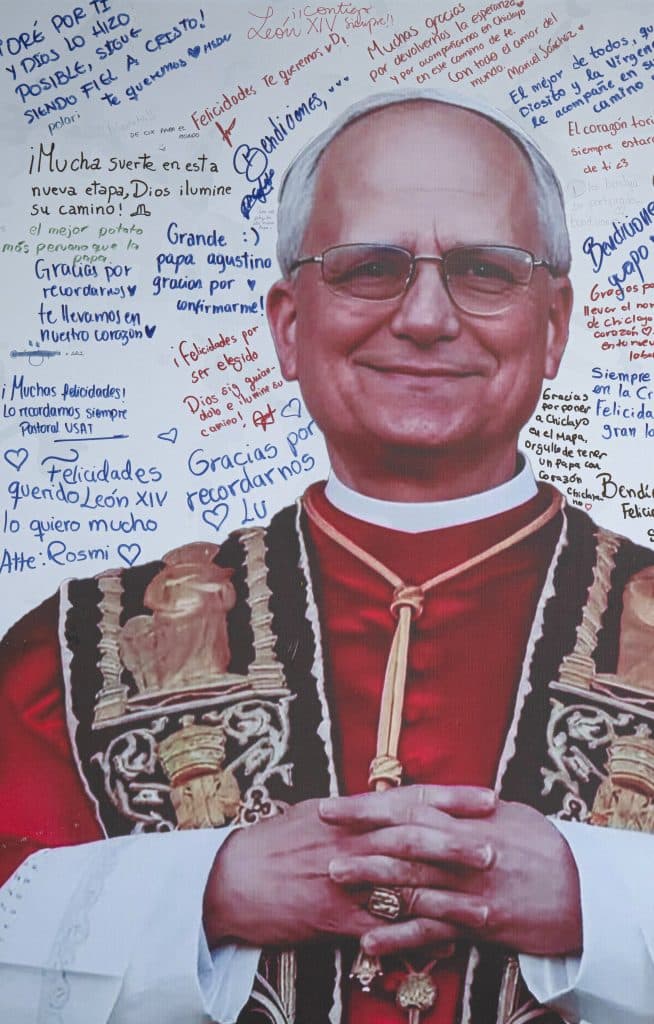 ORÉ POR TI
Y DIOS LO HIZO
POSIBLE, SIGUE
SIENDO FIEL A CRISTO!
te queremos
¡¡Contigo
León XIV siempre!!
Felicidades Te queremos
Muchas gracias
por devolvernos la esperanza
y por acompañarnos en Chiclayo
en este camino de fe.
Con todo el amor del
mundo,
El mejor de todos, que
Diosito y la Virgen
le acompañe en su
camino
El corazón
siempre
de ti <3
Bendiciones,...
¡Mucha suerte en esta
nueva etapa, Dios ilumine
su camino!
el mejor potato
más peruano que la
papa.
Gracias por
recordarnos
te llevamos en
nuestro corazón
Grande :)
papa agustino
gracias por
confirmarme!
Bendiciones
guapo
llevar el
de Chiclayo
corazón
¡Felicidades por
ser elegido
Dios siga
e ilumine su
camino!
¡Muchas felicidades!
Lo recordamos siempre
Pastoral USAT
Siempre
en la
Gracias
por poner
a Chiclayo
en el Mapa,
orgullo de tener
un Papa con
Corazón
Felicidades
querido León XIV
lo quiero mucho
Atte: Rosmi
Gracias por
recordarnos
LU